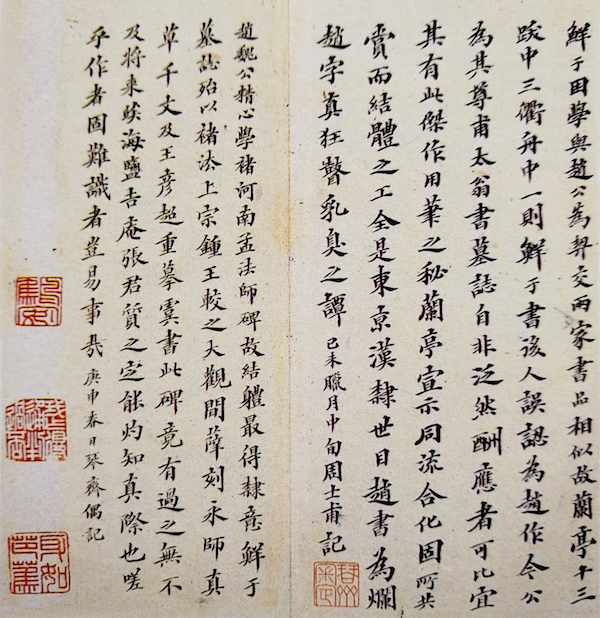 鮮于困學與趙公為契交兩家書品相似故蘭亭十三
跋中三衢舟中一則鮮于書人誤認為趙作今公
為其尊甫太翁書墓誌自非泛然酬應者可比宜
其有此傑作用筆之秘蘭亭宣示同流合化固所共
賞而結體之工全是東京漢隸世目趙書為爛
趙字真狂瞽乳臭之譚 己未臘月中旬周士甫記
趙魏公精心學褚河南孟法師碑故結軆最得隸意鮮于
墓誌殆以褚法上宗鍾王較之大觀間薛刻永師真
草千文及王彥超重摹虞書此碑竟有過之無不
及將來海鹽吉庵張君質之定能灼知真際也嗟
乎作者固難識者豈易事哉 庚申春日琴齋偶記